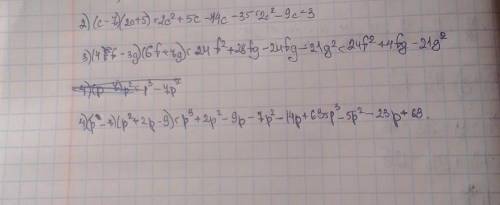 2) (c-7)(2c+5)=2c²+5c-14c-35=2c²-9c-3
3) (4f-3g)(6f+7g)=24f²+28fg-24fg-21g²=24f²+4fg-21g²
4) (p²-7)(p²+2p-9)=p³+2p²-9p-7p²-14p+63=p³-5p²-23p+63.